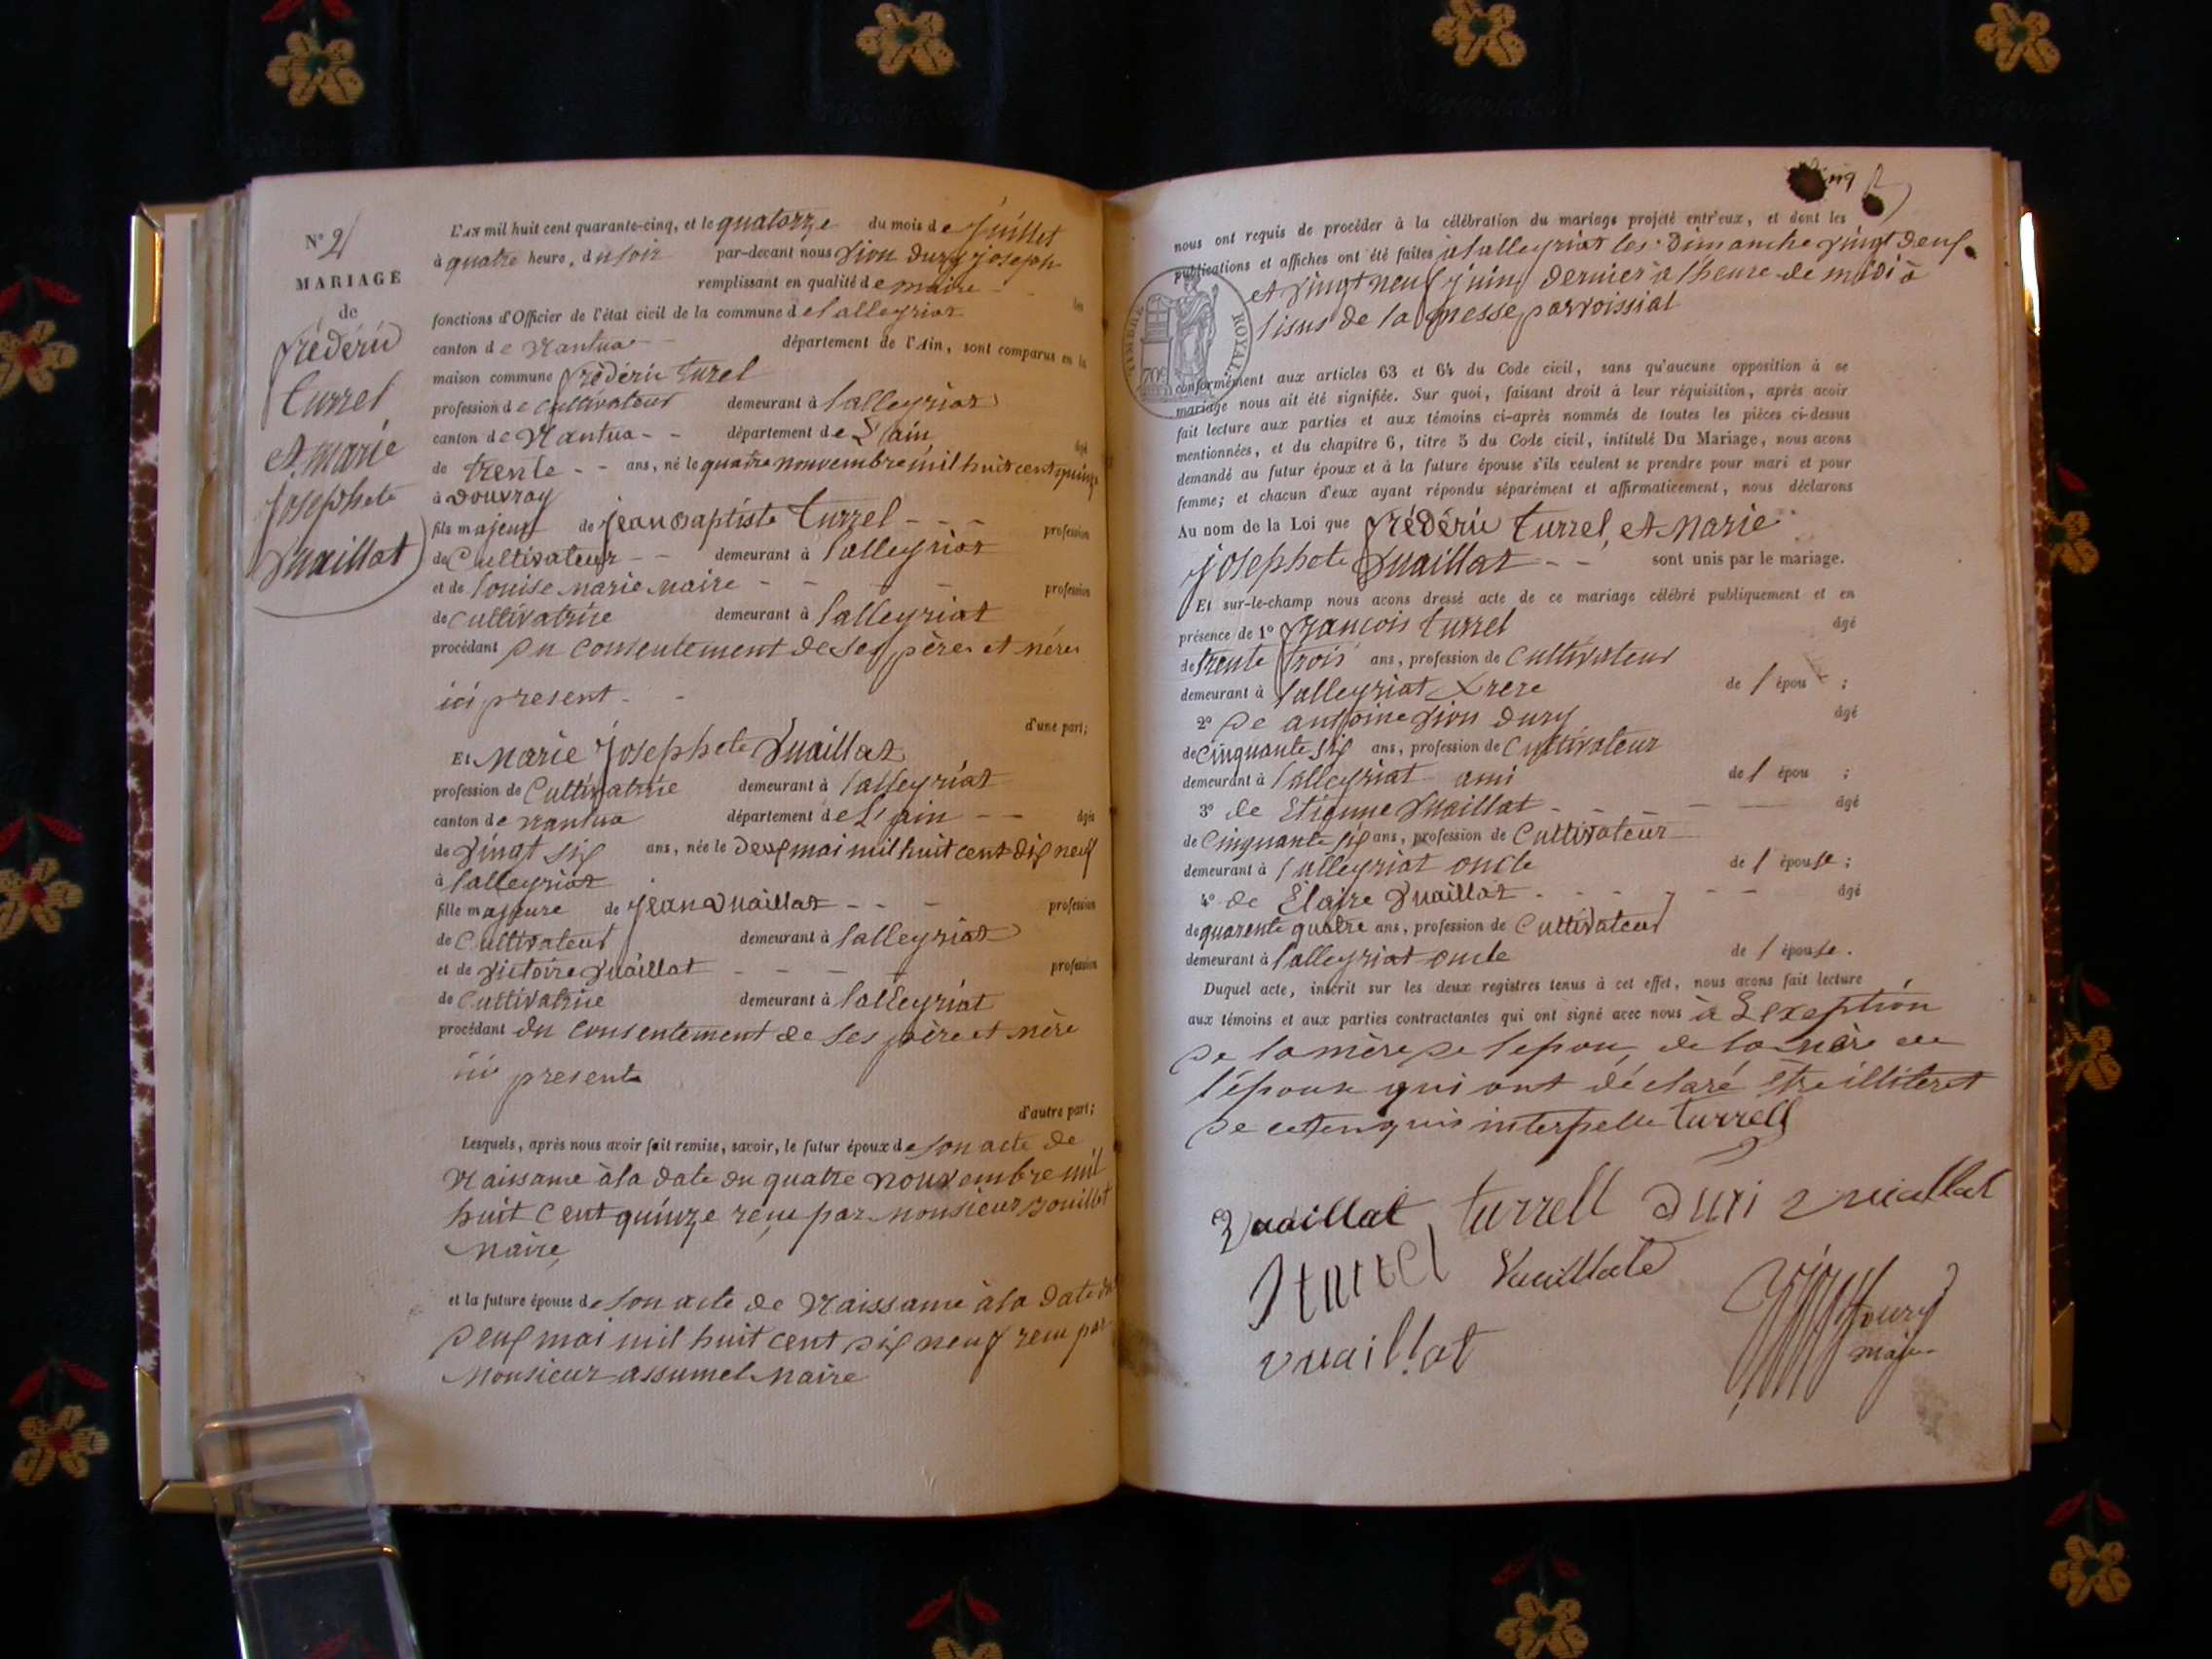 N° 2
MARIAGE
de
frédéric
turrel
et marie
josephete
Vuaillat
L'AN mil huit cent quarante-cinq, et le quatorze du mois de juillet
à quatre heure, du soir par-devant nous Sion dury joseph
remplissant en qualité de maire
fonctions d'Officier de l'état civil de la commune de lalleyriat les
canton de Nantua département de l'Ain, sont comparus en la
maison commune frédéric turel
profession de cultivateur demeurant à lalleyriat
canton de Nantua - - département de L'ain âgé
de trente - - ans, né le quatre nouvembre mil huit cent quinze
à Douvray
fils majeur de jean baptiste turrel - - - profession
de Cultivateur - - demeurant à lalleyriat
et de louise marie maire - - - - profession
de cultivatrice demeurant à lalleyriat
procédant du consentement de ses pères et mères
ici present - -
d'une part;
Et marie josephete Vuaillat
profession de Cultivatrice demeurant à lalleyriat
canton de nantua département de L'ain - - âgée
de vingt six ans, née le deux mai mil huit cent dix neuf
à lalleyriat
fille majeure de jean Vuaillat - - - profession
de Cultivateur demeurant à lalleyriat
et de Victoire Vuaillat - - - - profession
de Cultivatrice demeurant à lalleyriat
procédant du consentement de ses père et mère
ici present
d'autre part;
Lesquels, après nous avoir fait remise, savoir, le futur époux de son acte de
Naissance à la date du quatre nouvembre mil
huit cent quinze reçu par monsieur bouillot
maire,
et la future épouse de son acte de Naissance à la date du
deux mai mil huit cent dix neuf reçu par
monsieur assumel maire
nous ont requis de procéder à la célébration du mariage projeté entr'eux, et dont les
publications et affiches ont été faites à lalleyriat les dimanche vingt deux
et vingt neuf juin dernier à l'heure de midi à
lisus de la messe parroissial
TIMBRE ROYAL
70c
conformément aux articles 63 et 64 du Code civil, sans qu'aucune opposition à ce
mariage nous ait été signifiée. Sur quoi, faisant droit à leur réquisition, après avoir
fait lecture aux parties et aux témoins ci-après nommés de toutes les pièces ci-dessus
mentionnées, et du chapitre 6, titre 5 du Code civil, intitulé Du Mariage, nous avons
demandé au futur époux et à la future épouse s'ils veulent se prendre pour mari et pour
femme; et chacun d'eux ayant répondu séparément et affirmativement, nous déclarons
Au nom de la Loi que frédéric turrel, et marie
josephete Vuaillat - - sont unis par le mariage.
Et sur-le-champ nous avons dressé acte de ce mariage célébré publiquement et en
présence de 1° françois turrel âgé
de trente trois ans, profession de Cultivateur
demeurant à lalleyriat frere de l épou ;
2° de antoine Sion dury âgé
de cinquante six ans, profession de Cultivateur
demeurant à lalleyriat ami de l épou ;
3° de Etienne Vuaillat - - - - âgé
de Cinquante six ans, profession de Cultivateur
demeurant à lalleyriat oncle de l épouse ;
4° de Elaire Vuaillat - - - - - âgé
de quarente quatre ans, profession de Cultivateur
demeurant à lalleyriat oncle de l épouse.
Duquel acte, inscrit sur les deux registres tenus à cet effet, nous avons fait lecture
aux témoins et aux parties contractantes qui ont signé avec nous à L'exeption
de la mère de lepou, de la mère de
l'épouse qui ont déclaré etre illiteret
de ce enquis interpelle turrell
Vuaillat turrell Duri Vuaillat
turrel Vuaillate
vuaillat
Dury
maire